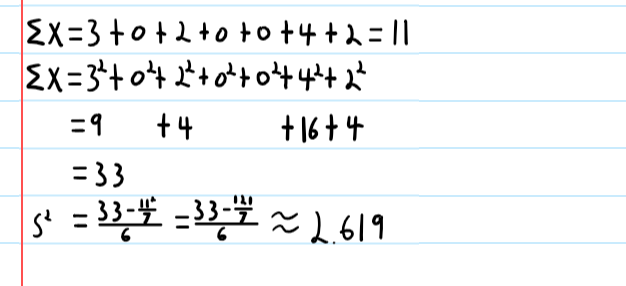 ΣX=3+0+2+0+0+4+2=11
ΣX=3²+0²+2²+0²+0²+4²+2²
=9 +4 +16+4
=33
S² = (33-11²/7)/6 = (33-121/7)/6 ≈ 2.619